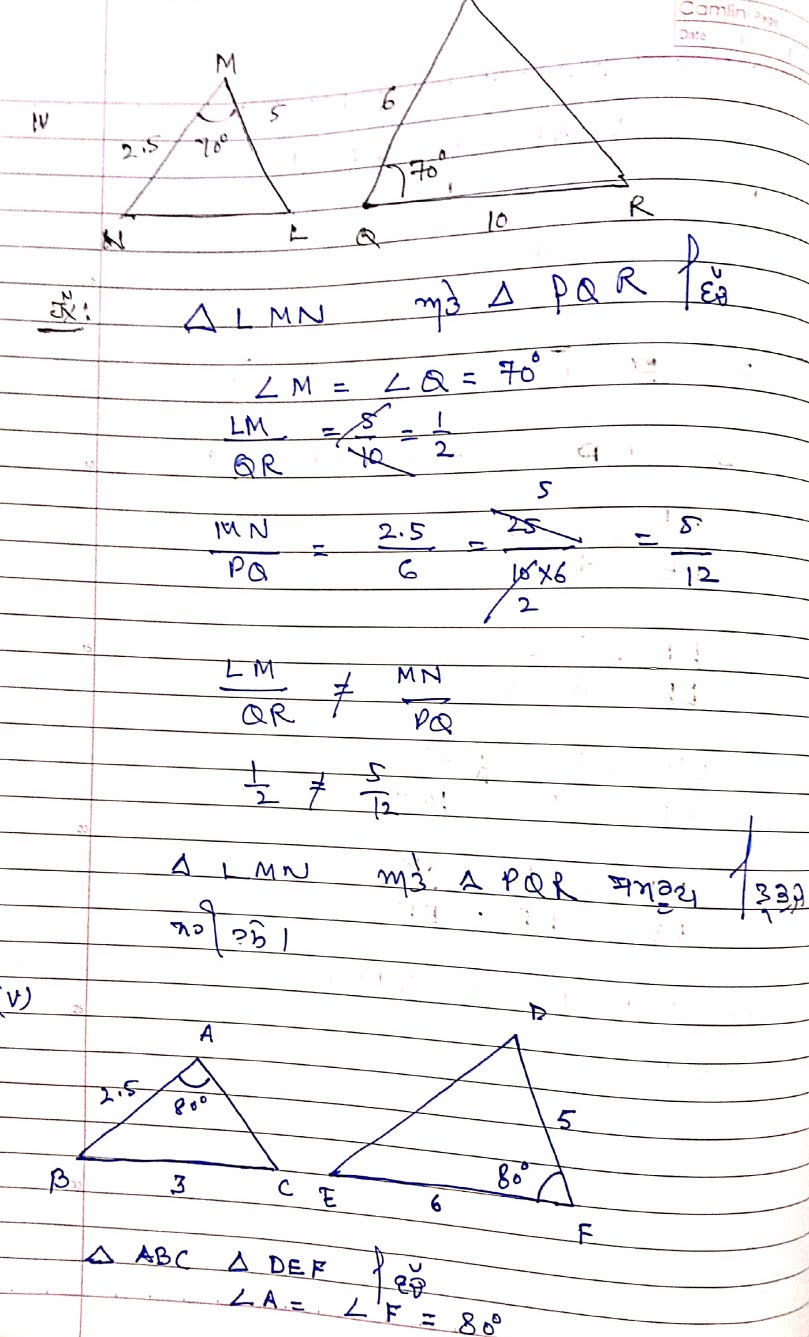 Camlin Page
Date
IV
M
2.5 70° 5
N L
6
70°
Q 10 R
ਹੱਲ:
Δ LMN ਅਤੇ Δ PQR ਵਿੱਚ
∠M = ∠Q = 70°
LM/QR = 5/10 = 1/2
MN/PQ = 2.5/6 = 25/10×6 = 5/12
5
2
LM/QR ≠ MN/PQ
1/2 ≠ 5/12
Δ LMN ਅਤੇ Δ PQR ਸਮਰੂਪ
ਨਹੀਂ ਹਨ।
(V)
A
2.5 80°
B 3 C
D
5
80°
E 6 F
Δ ABC Δ DEF ਵਿੱਚ
∠A = ∠F = 80°